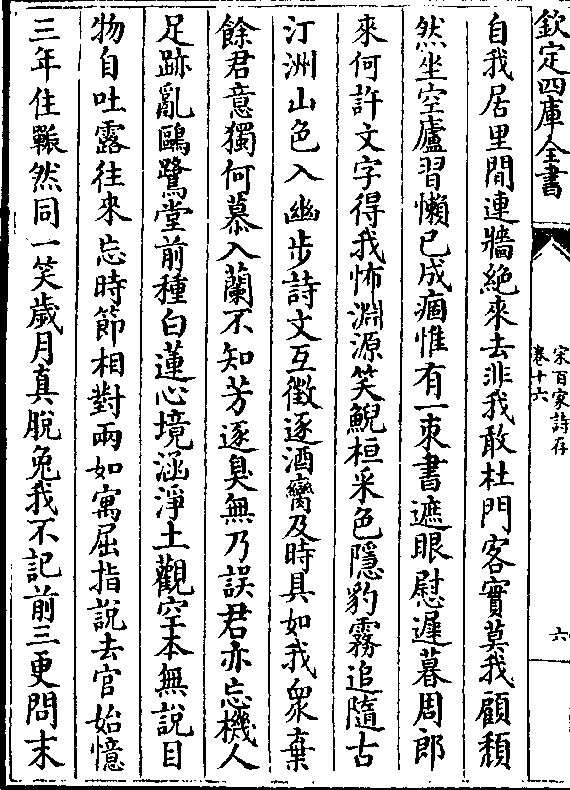 欽定四庫全書
宋百家詩存
卷十六
六
自我居里閭連牆絶來去非我敢杜門客實莫我顧頽
然坐空廬習懶已成痼惟有一束書遮眼慰遲暮周郎
來何許文字得我怖淵源笑鯢桓采色隱豹霧追隨古
汀洲山色入幽步詩文互徵逐酒臠及時具如我衆棄
餘君意獨何慕入蘭不知芳逐臭無乃誤君亦忘機人
足跡亂鷗鷺堂前種白蓮心境涵淨土觀空本無說目
物自吐露往來忘時節相對兩如寓屈指說去官始憶
三年住囅然同一笑歲月真脫兔我不記前三更問末